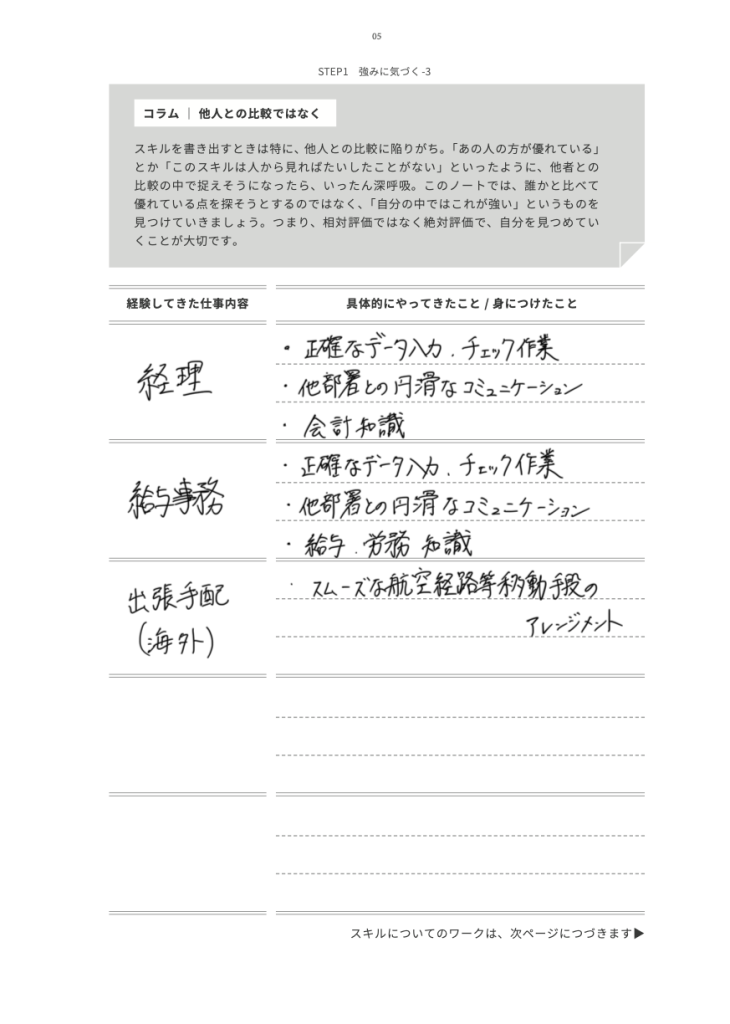 05
STEP1 強みに気づく-3
コラム｜他人との比較ではなく
スキルを書き出すときは特に、他人との比較に陥りがち。「あの人の方が優れている」
とか「このスキルは人から見ればたいしたことがない」といったように、他者との
比較の中で捉えそうになったら、いったん深呼吸。このノートでは、誰かと比べて
優れている点を探そうとするのではなく、「自分の中ではこれが強い」というものを
見つけていきましょう。つまり、相対評価ではなく絶対評価で、自分を見つめてい
くことが大切です。
経験してきた仕事内容
具体的にやってきたこと / 身につけたこと
経理
・正確なデータ入力、チェック作業
・他部署との円滑なコミュニケーション
・会計知識
給与事務
・正確なデータ入力、チェック作業
・他部署との円滑なコミュニケーション
・給与、労務 知識
出張手配
(海外)
・スムーズな航空経路等移動手段の
アレンジメント
スキルについてのワークは、次ページにつづきます▶